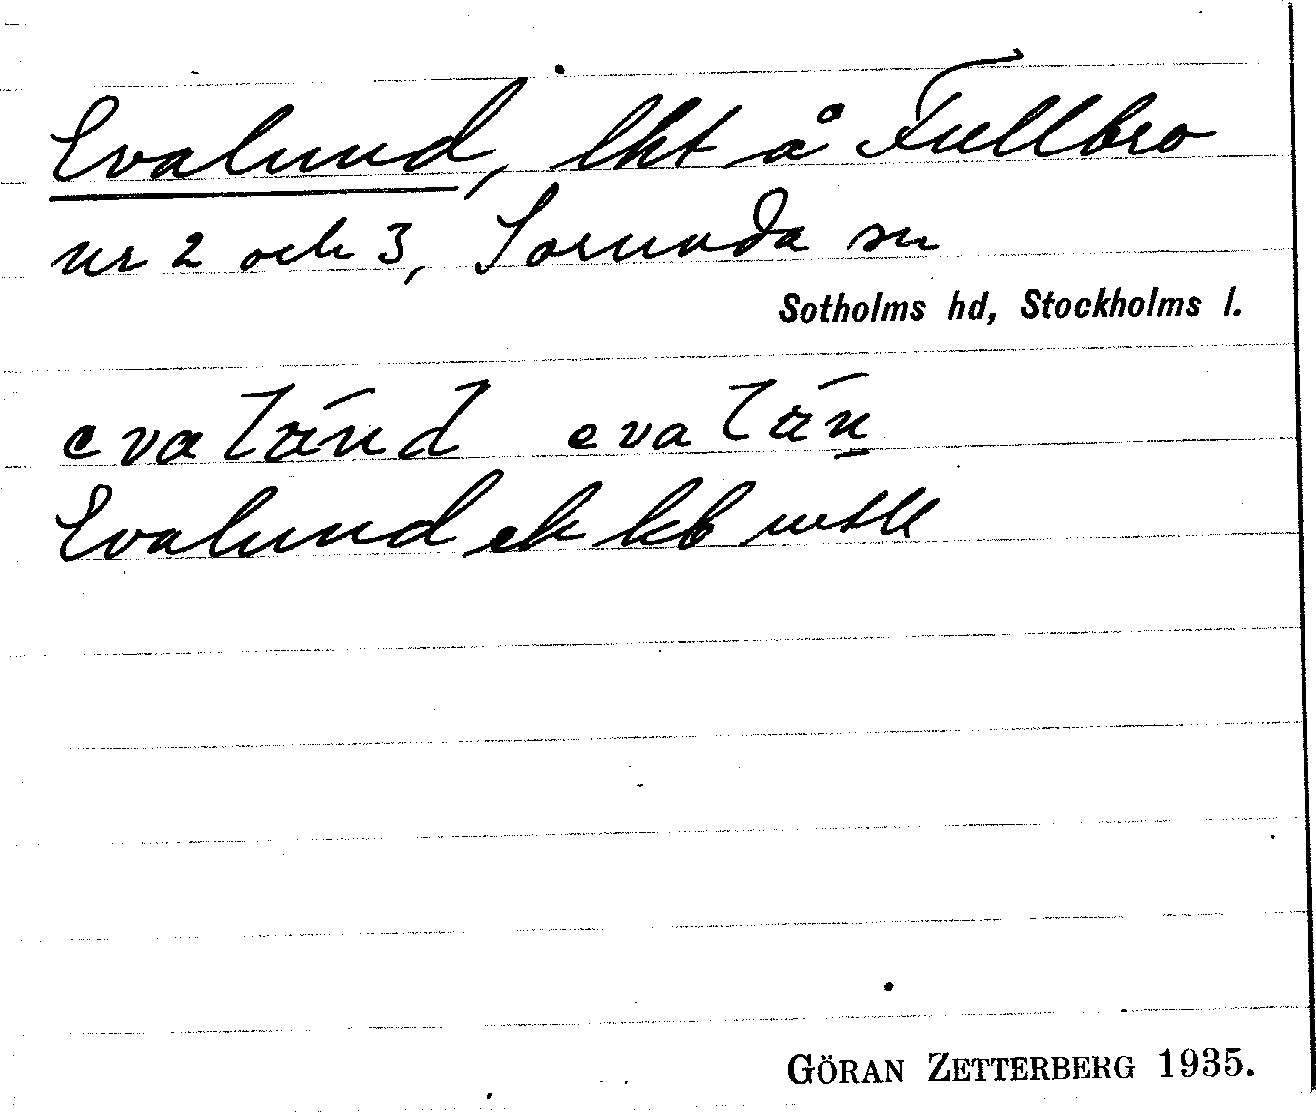 Evalund, lht å Fullbro
nr 2 och 3, Sorunda sn
Sotholms hd, Stockholms l.
Evalund ek kb
GÖRAN ZETTERBERG 1935.